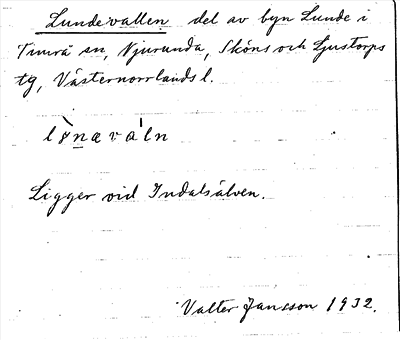 Lundevallen del av byn Lunde i
Timrå sn, Njurunda, Sköns och Ljustorps
tg, Västernorrlands l.
Ligger vid Indalsälven.
Valter Jansson 1932.